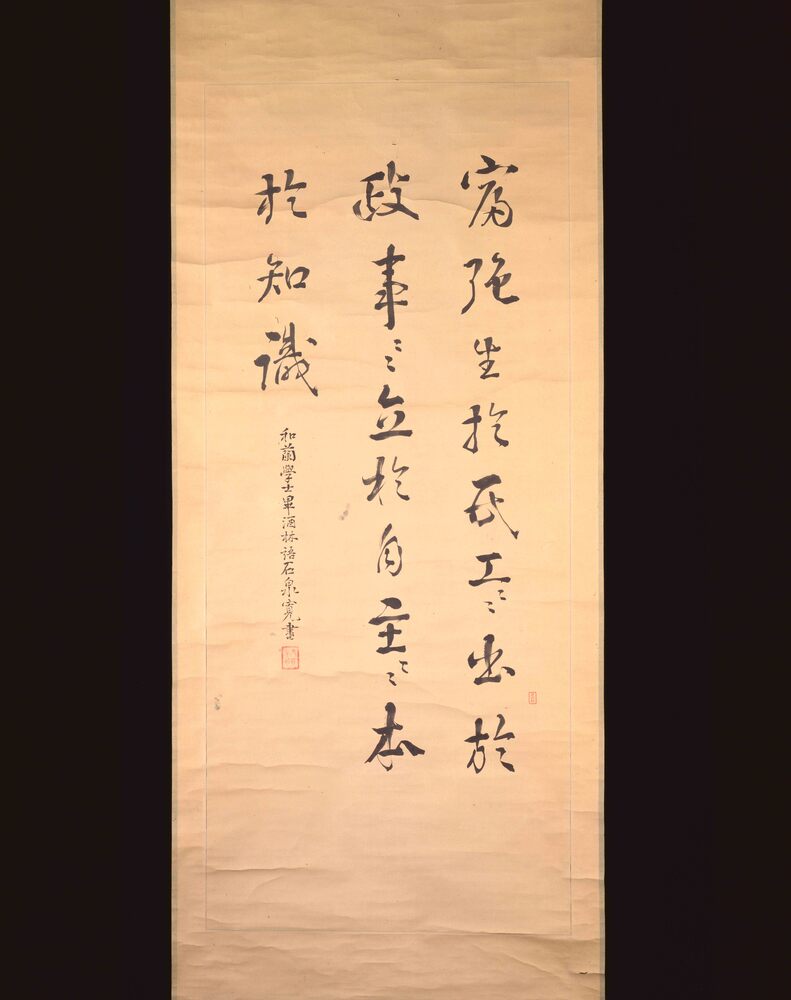 富強生於民工〻〻出於
政事〻〻立於自主〻〻本
於知識
和蘭學士畢酒林語石泉寛書